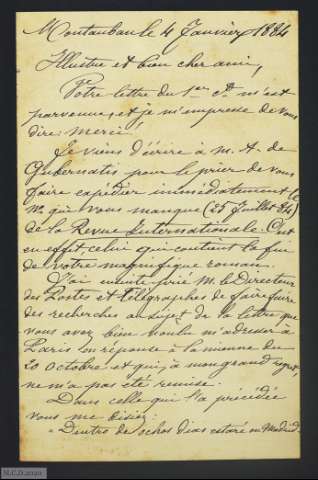 Montauban le 4 Janvier 1884
Illustre et bien cher ami,
Votre lettre du 1er ct. m'est
parvenue, et je m'empresse de vous
dire merci!
Je viens d'écrire à M. A. de
Gubernatis pour le prier de vous
faire expédier immédiatement le
no. qui vous manque (25 Juillet 84)
de la Revue Internationale. C'est
en effet celui qui contient la fin
de votre magnifique roman.
J'ai ensuite prié M. le Directeur
des Postes et télégraphes de faire faire
des recherches au sujet de la lettre que
vous avez bien voulu m'adresser à
Paris en réponse à la mienne du
20 octobre et qui, à mon grand regret,
ne m'a pas été remise.
Dans celle qui l'a précédée
vous me disiez:
"Dentro de ochos dias estaré en Madrid.